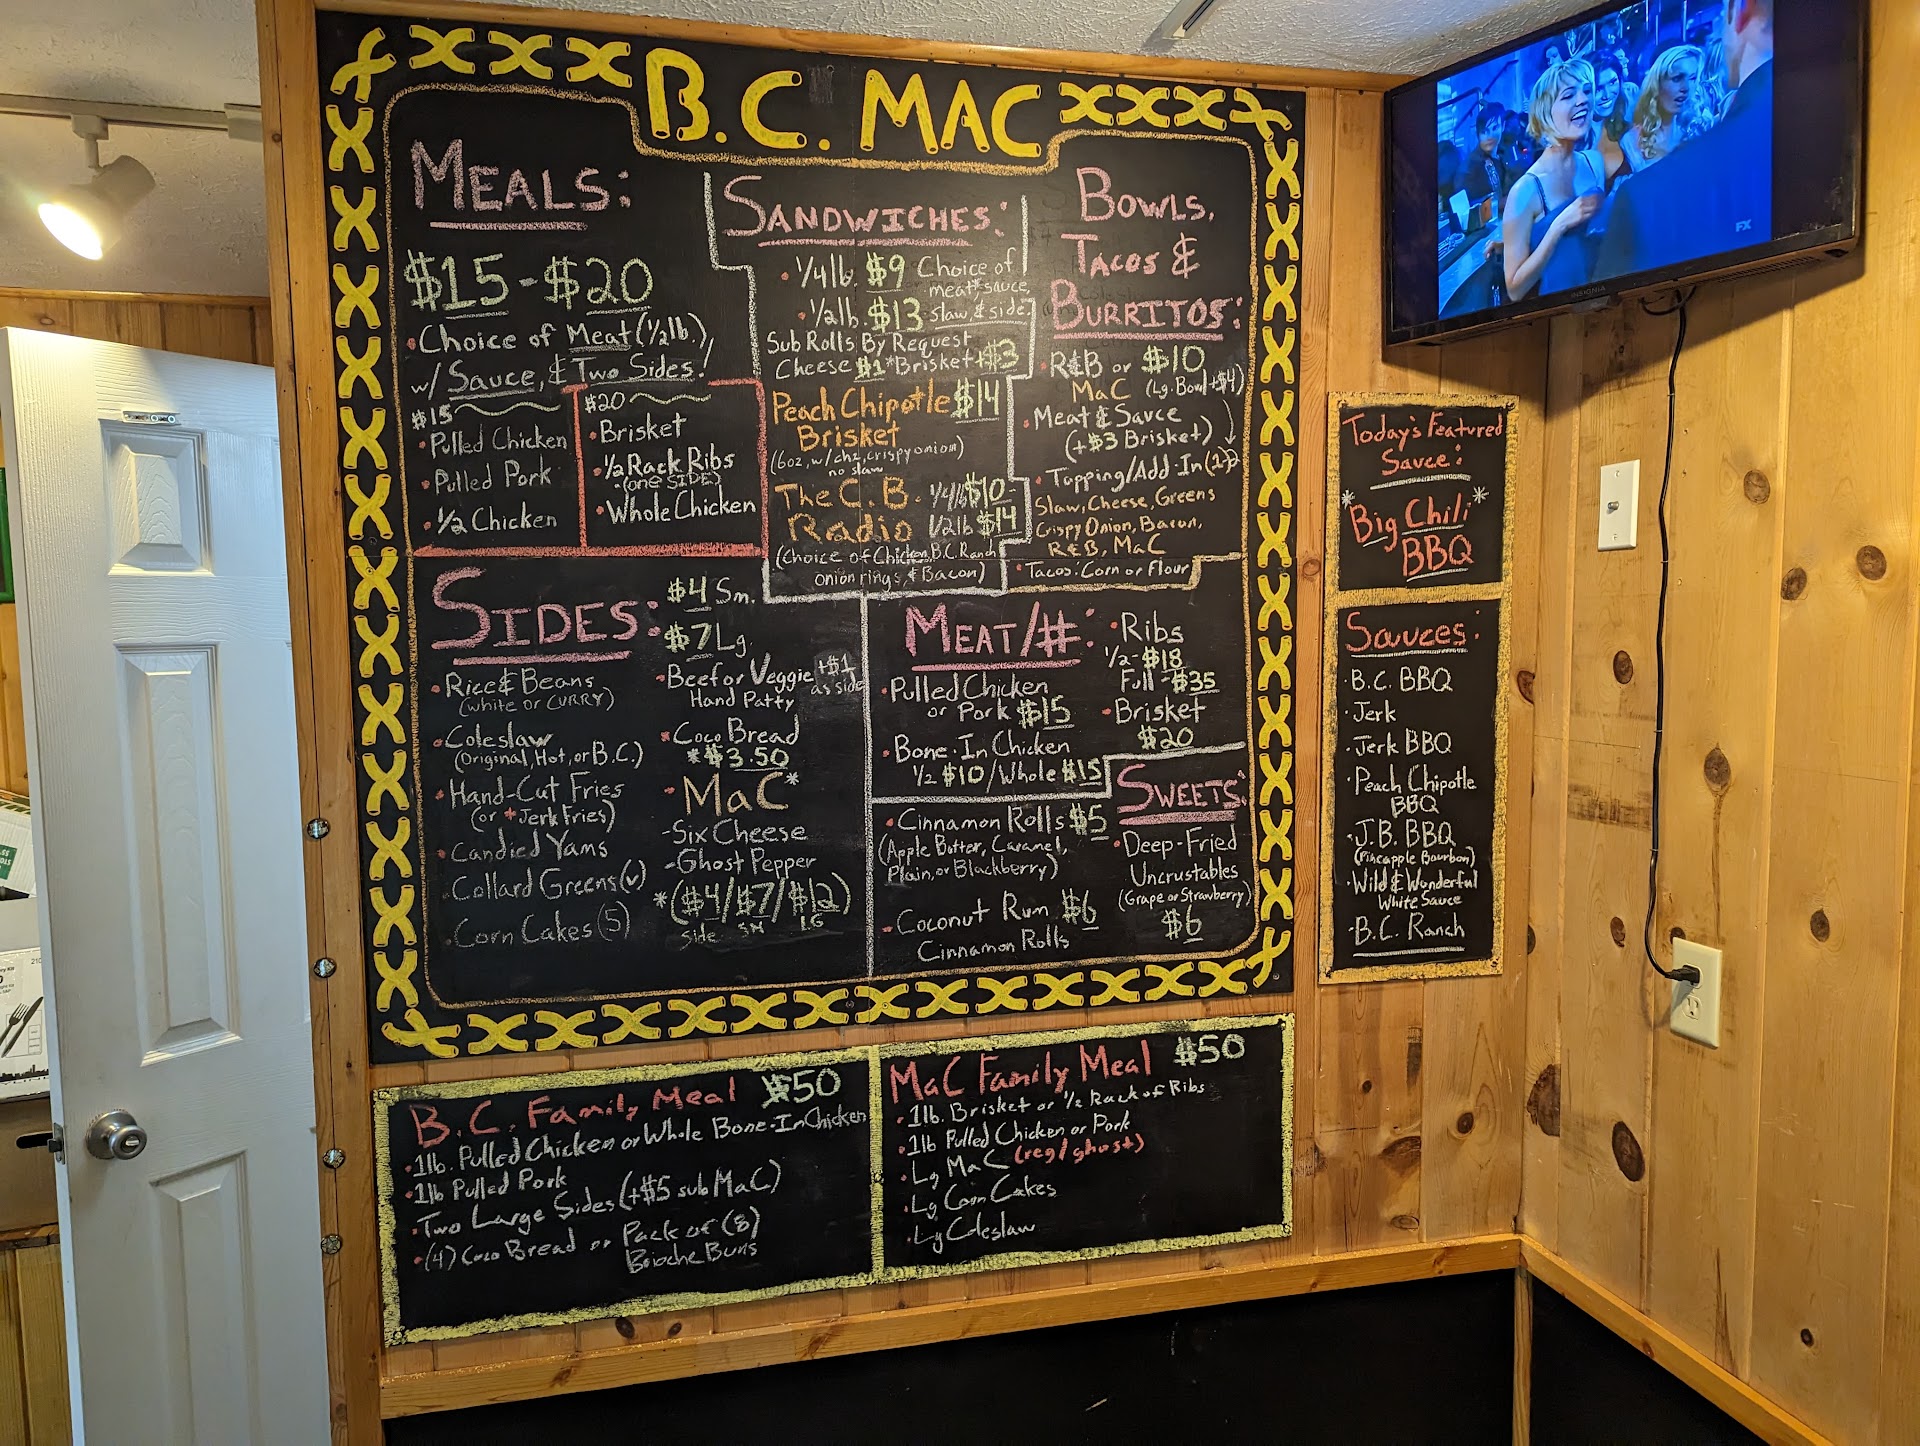 B.C. MAC
MEALS:
$15-$20
•Choice of Meat (1/2lb.)
w/ Sauce, & Two Sides!
$15
•Pulled Chicken
•Pulled Pork
•1/2 Chicken
$20
•Brisket
•1/2 Rack Ribs
(ONE SIDE)
•Whole Chicken
SANDWICHES:
•1/4lb. $9 Choice of
meat*, sauce,
•1/2lb. $13 slaw, & side.
Sub Rolls By Request
Cheese $1 *Brisket +$3
Peach Chipotle $14
Brisket
(6oz, w/chz, crispy onion)
no slaw
The C.B. 1/4lb $10-
Radio 1/2lb $14
(Choice of Chicken, B.C. Ranch
onion rings, & Bacon)
BOWLS,
TACOS &
BURRITOS:
•R&B or $10
MaC (Lg. Bowl +$4)
•Meat & Sauce
(+$3 Brisket)
•Topping/Add-In (1)2
Slaw, Cheese, Greens
Crispy Onion, Bacon,
R&B, MaC
•Tacos: Corn or Flour
SIDES: $4 Sm.
$7 Lg.
•Rice & Beans
(White or CURRY)
•Coleslaw
(Original, Hot, or B.C.)
•Hand-Cut Fries
(or *Jerk Fries)
•Candied Yams
•Collard Greens (v)
•Corn Cakes (5)
•Beef or Veggie +$1
Hand Patty as side
•Coco Bread
*$3.50
•MaC*
-Six Cheese
-Ghost Pepper
*($4/$7/$12)
Side SM LG
MEAT/#:
•Pulled Chicken
or Pork $15
•Bone-In Chicken
1/2 $10/Whole $15
•Ribs
1/2-$18
Full-$35
•Brisket
$20
SWEETS:
•Cinnamon Rolls $5
(Apple Butter, Caramel,
Plain, or Blackberry)
•Coconut Rum $6
Cinnamon Rolls
•Deep-Fried
Uncrustables
(Grape or Strawberry)
$6
B.C. Family Meal $50
•1lb. Pulled Chicken or Whole Bone-In Chicken
•1lb Pulled Pork
•Two Large Sides (+$5 sub MaC)
•(4) Coco Bread or Pack of (8)
Brioche Buns
MaC Family Meal $50
•1lb. Brisket or 1/2 Rack of Ribs
•1lb Pulled Chicken or Pork
•Lg MaC (reg/ghost)
•Lg Corn Cakes
•Lg Coleslaw
Today's Featured
Sauce:
*Big Chili*
BBQ
Sauces:
•B.C. BBQ
•Jerk
•Jerk BBQ
•Peach Chipotle
BBQ
•J.B. BBQ
(Pineapple Bourbon)
•Wild & Wonderful
White Sauce
•B.C. Ranch
FX
INSIGNIA